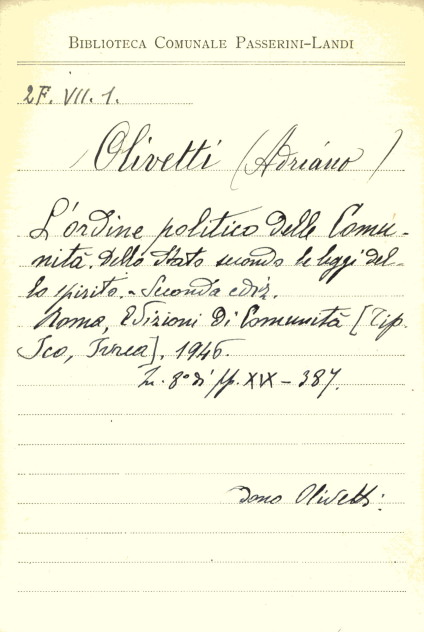 BIBLIOTECA COMUNALE PASSERINI-LANDI
2F. VII. 1.
Olivetti (Adriano)
L'ordine politico delle Comu-
nità. Dello Stato secondo le leggi del-
lo spirito. - Seconda ediz.
Roma, Edizioni di Comunità [Tip.
Ico, Ivrea], 1946.
In 8° di pp. XIX - 387.
Dono Olivetti.